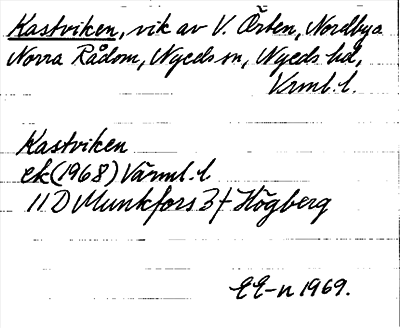 Kastviken, vik av V. Örten, Nordbya
Norra Rådom, Nyeds sn, Nyeds hd,
Vrml. l.
Kastviken
ek (1968) Värml. l
11 D Munkfors 3 f Högberg
EE-n 1969.